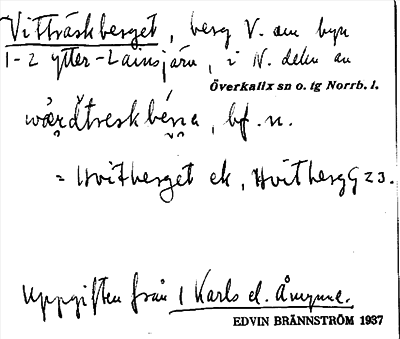 Vitträskberget, berg V. om byn
1-2 Ytter-Lainsjärv, i N. delen av
Överkalix sn o. tg Norrb. l.
bf. n.
= Hvitberget ek, Hvitberg G 23.
Uppgiften från 1 Karls el. Ånynne.
EDVIN BRÄNNSTRÖM 1937